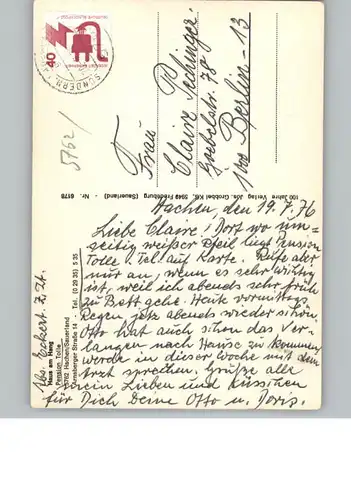 40
SUNDERN
5762/
Frau
Claire Pechinger
Goebelstr. 78
100 Berlin-13
100 Jahre Verlag Jos. Grobbel KG, 5949 Fredeburg (Sauerland) - Nr. 6178
Hachen, den 19.7.76
Liebe Claire! Dort wo um-
seitig weißer Pfeil liegt Pension
Tolle, Tel. auf Karte. Rufe aber
nur an, wenn es sehr wichtig
ist, weil ich abends sehr früh
zu Bett gehe. Heute vormittags
Regen, jetzt abends wieder schön.
Otto hat auch schon das Ver-
langen nach Hause zu kommen,
werde in dieser Woche mit dem
Arzt sprechen. Grüße alle
Deine Lieben und Küsschen
für Dich Deine Otto u. Doris.
Abs. Eckert. z. Zt.
Haus am Hang
Pension Tolle
5762 Hachen/Sauerland
Arnsberger Straße 14 · Tel. (0 29 35) 5 35